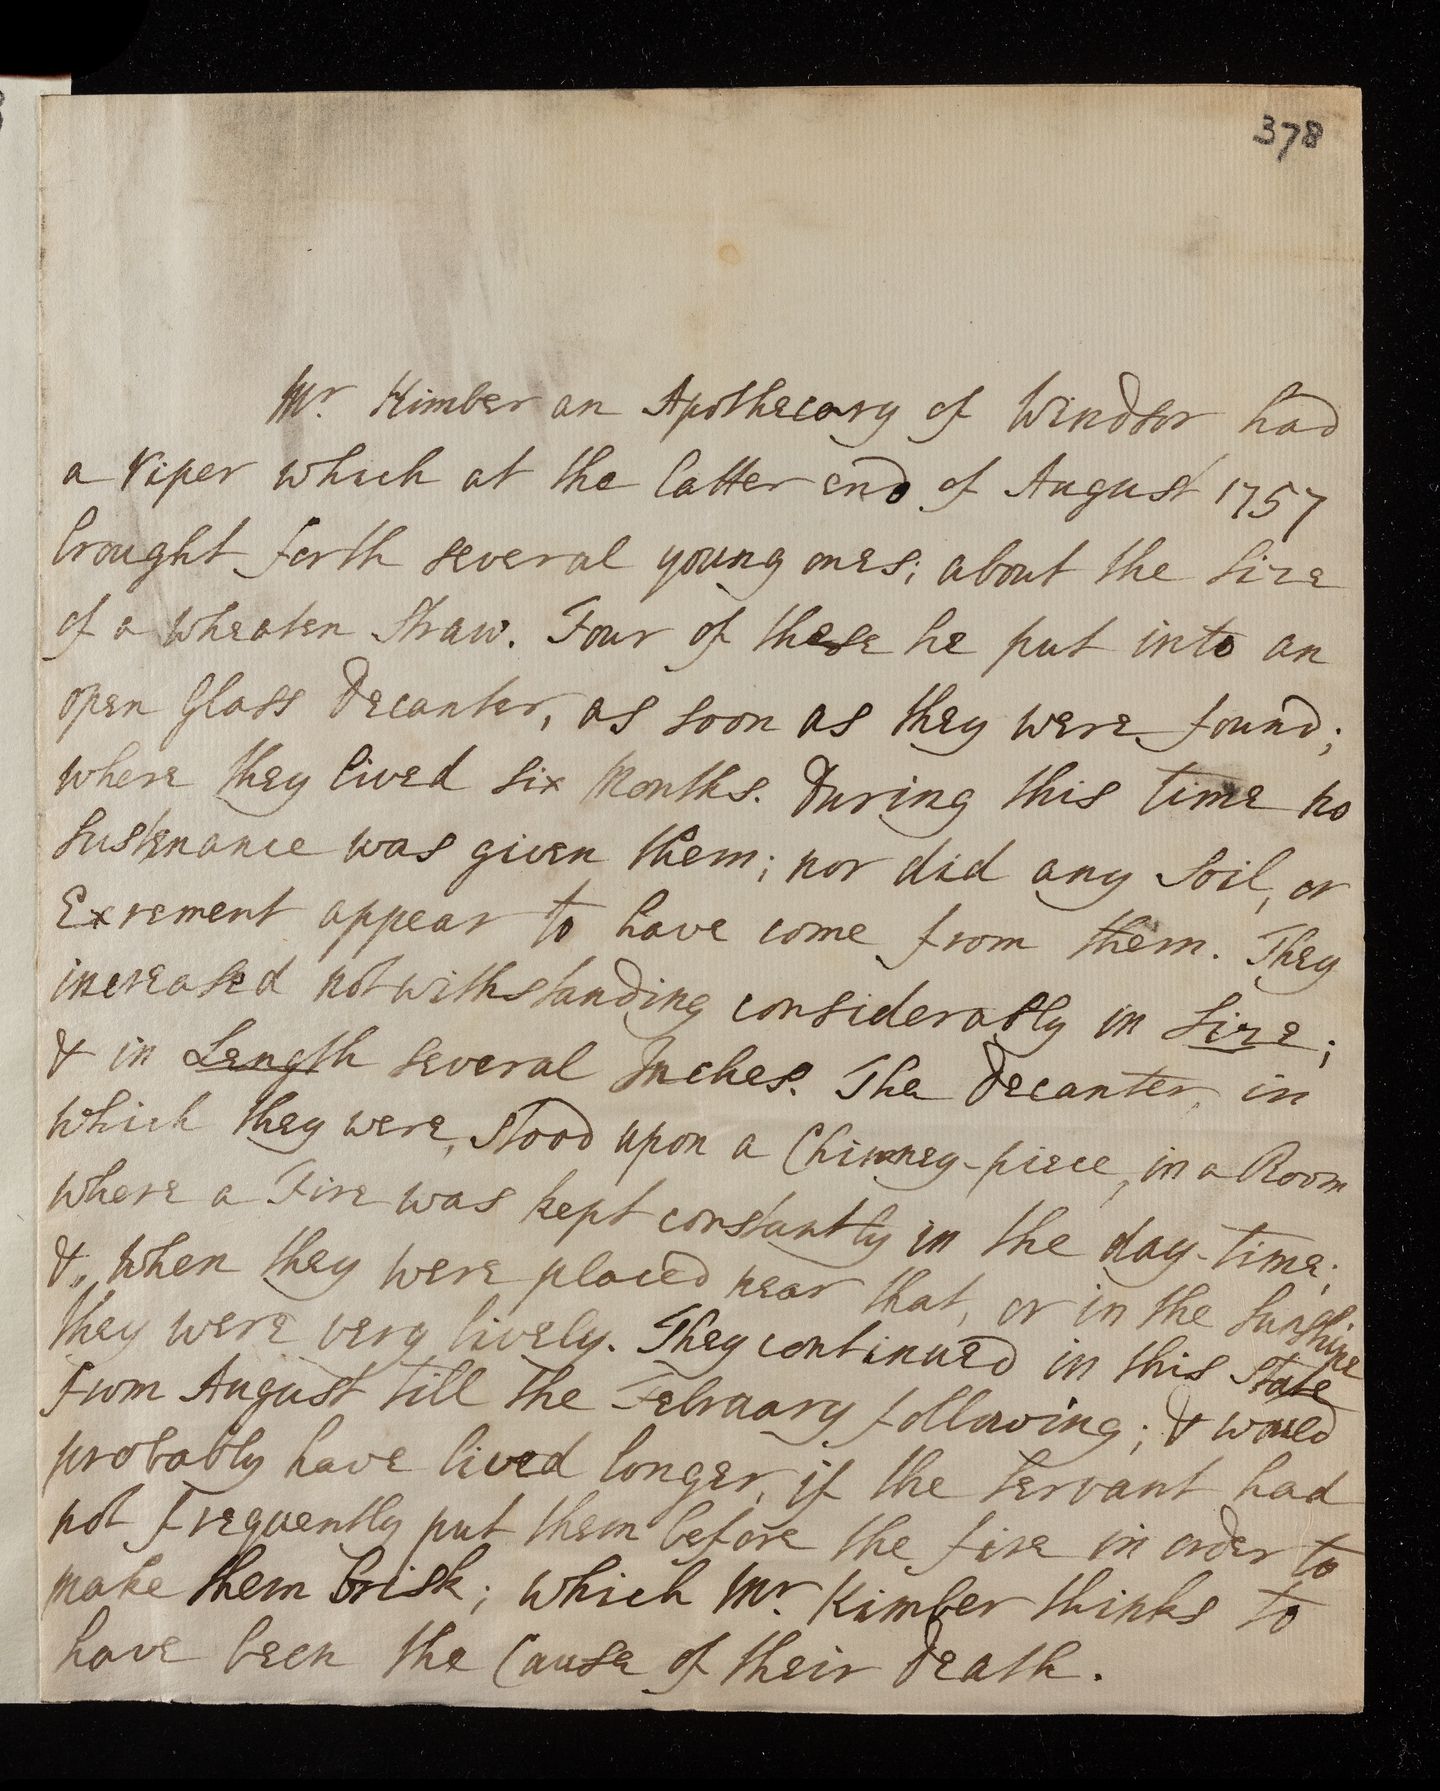 378
Mr. Kimber an Apothecary of Windsor had
a Viper which at the latter end of August 1757
brought forth several young ones; about the Size
of a wheaten Straw. Four of these he put into an
open Glass Decanter, as soon as they were found;
where they lived six Months. During this time no
Sustenance was given them; nor did any Soil, or
Exrement appear to have come from them. They
increased notwithstanding considerably in Size;
& in Length several Inches. The Decanter, in
which they were, stood upon a Chimney-piece, in a Room
where a Fire was kept constantly in the day-time;
&, when they were placed near that, or in the Sunshine
they were very lively. They continued in this State
from August till the February following; & would
probably have lived longer, if the Servant had
not frequently put them before the fire in order to
make them brisk; which Mr. Kimber thinks to
have been the Cause of their Death.